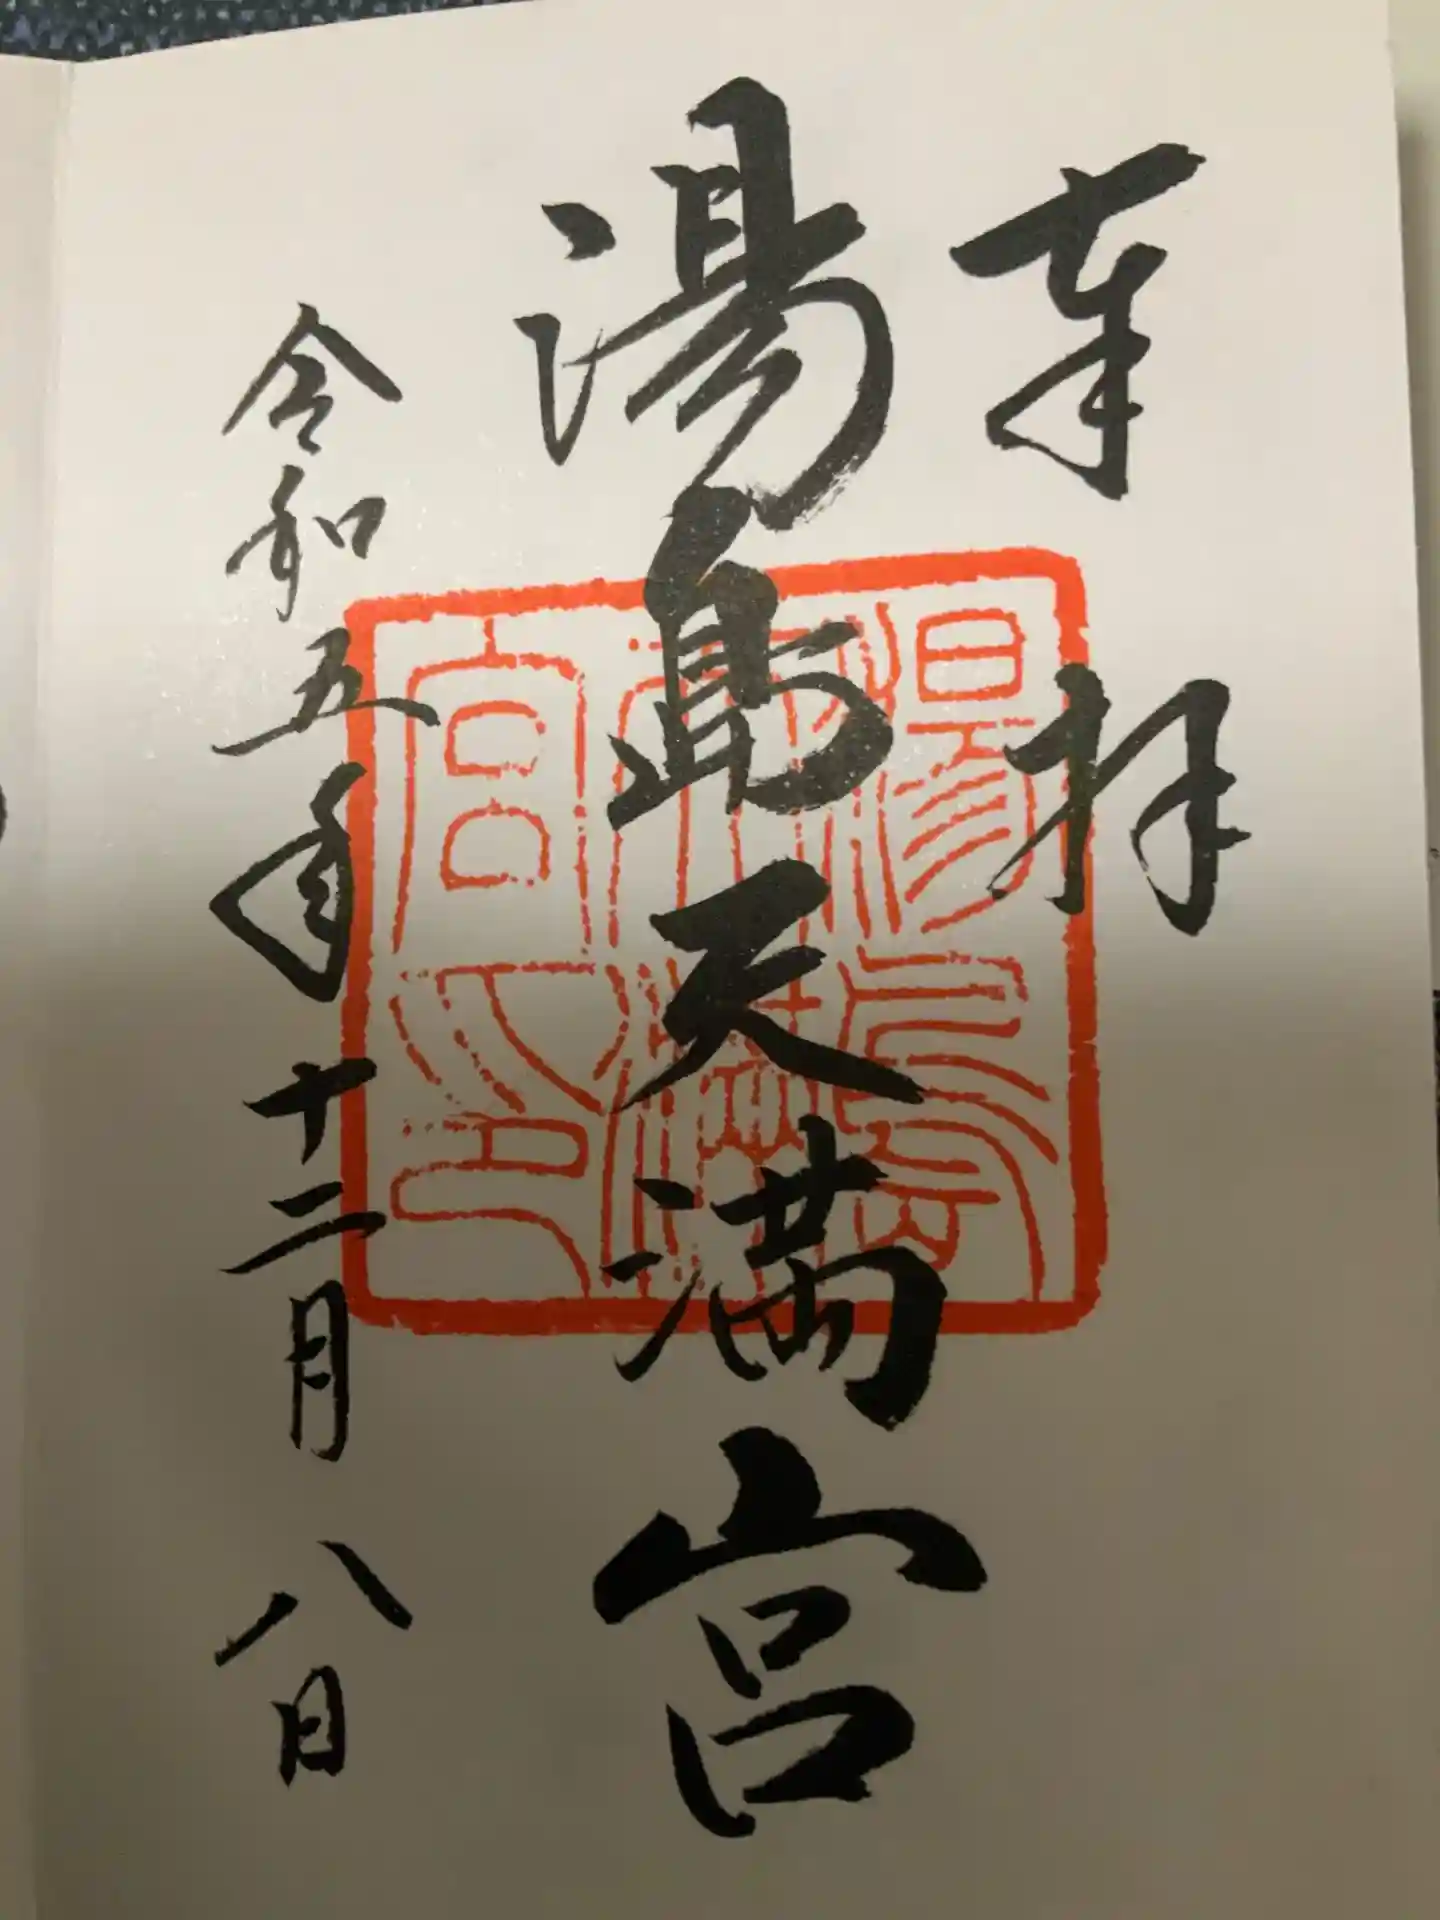 奉拝
湯島天満宮
令和五年十二月八日
湯島
天満
宮之印